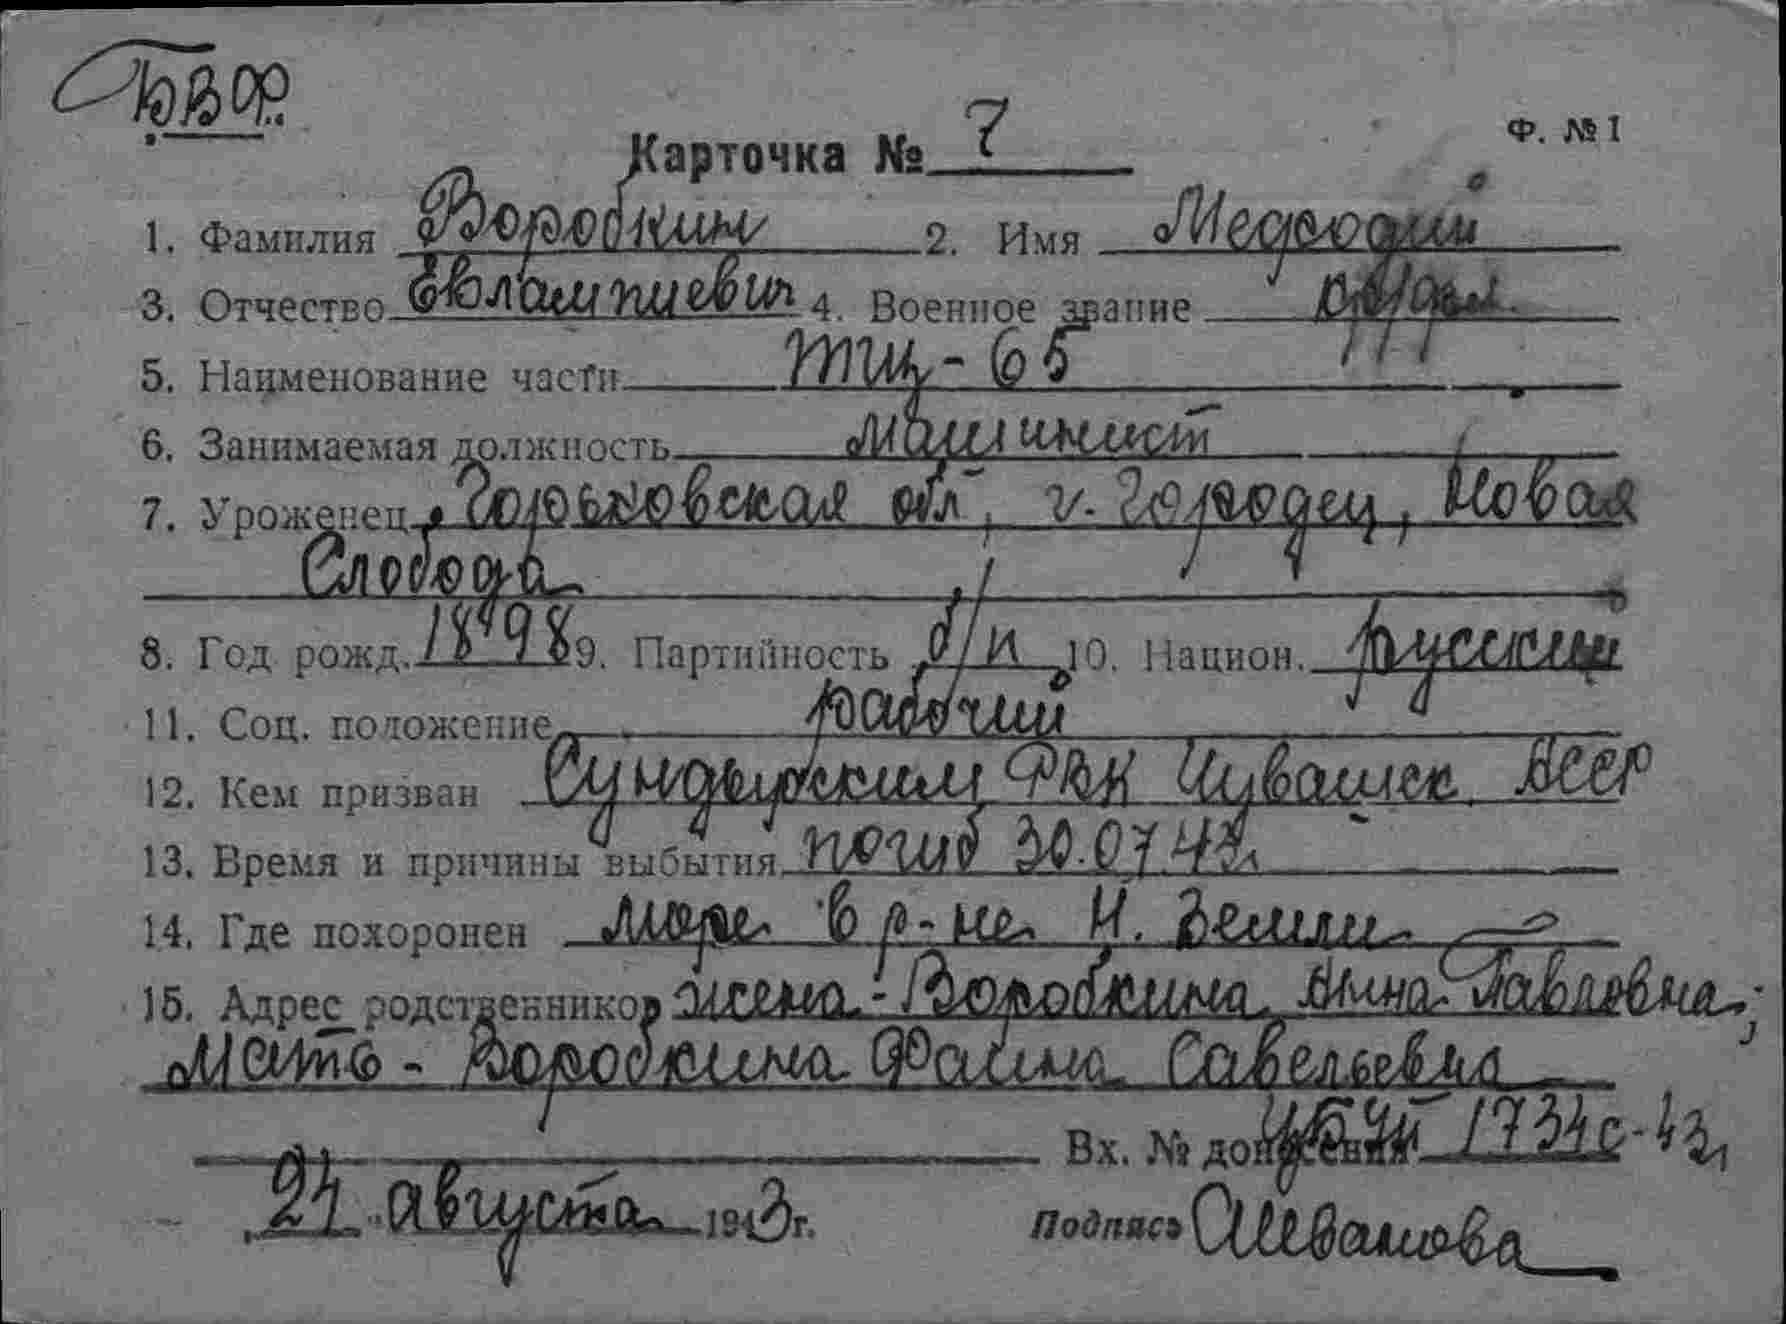 БВФ.
Карточка № 7 Ф. № 1
1. Фамилия Воробкин 2. Имя Мефодий
3. Отчество Евлампиевич 4. Военное звание
5. Наименование части ТЩ-65
6. Занимаемая должность машинист
7. Уроженец Горьковская обл, г. Городец, Новая
Слобода
8. Год рожд. 1898 9. Партийность б/п 10. Национ. русский
11. Соц. положение рабочий
12. Кем призван Сундырским РВК Чувашск. АССР
13. Время и причины выбытия погиб 30.07.43г
14. Где похоронен море в р-не Н. Земли
15. Адрес родственников жена - Воробкина Анна Павловна;
Мать - Воробкина Фаина Савельевна
Вх. № донесения 1734с-43г
24 августа 1943г. Подпись